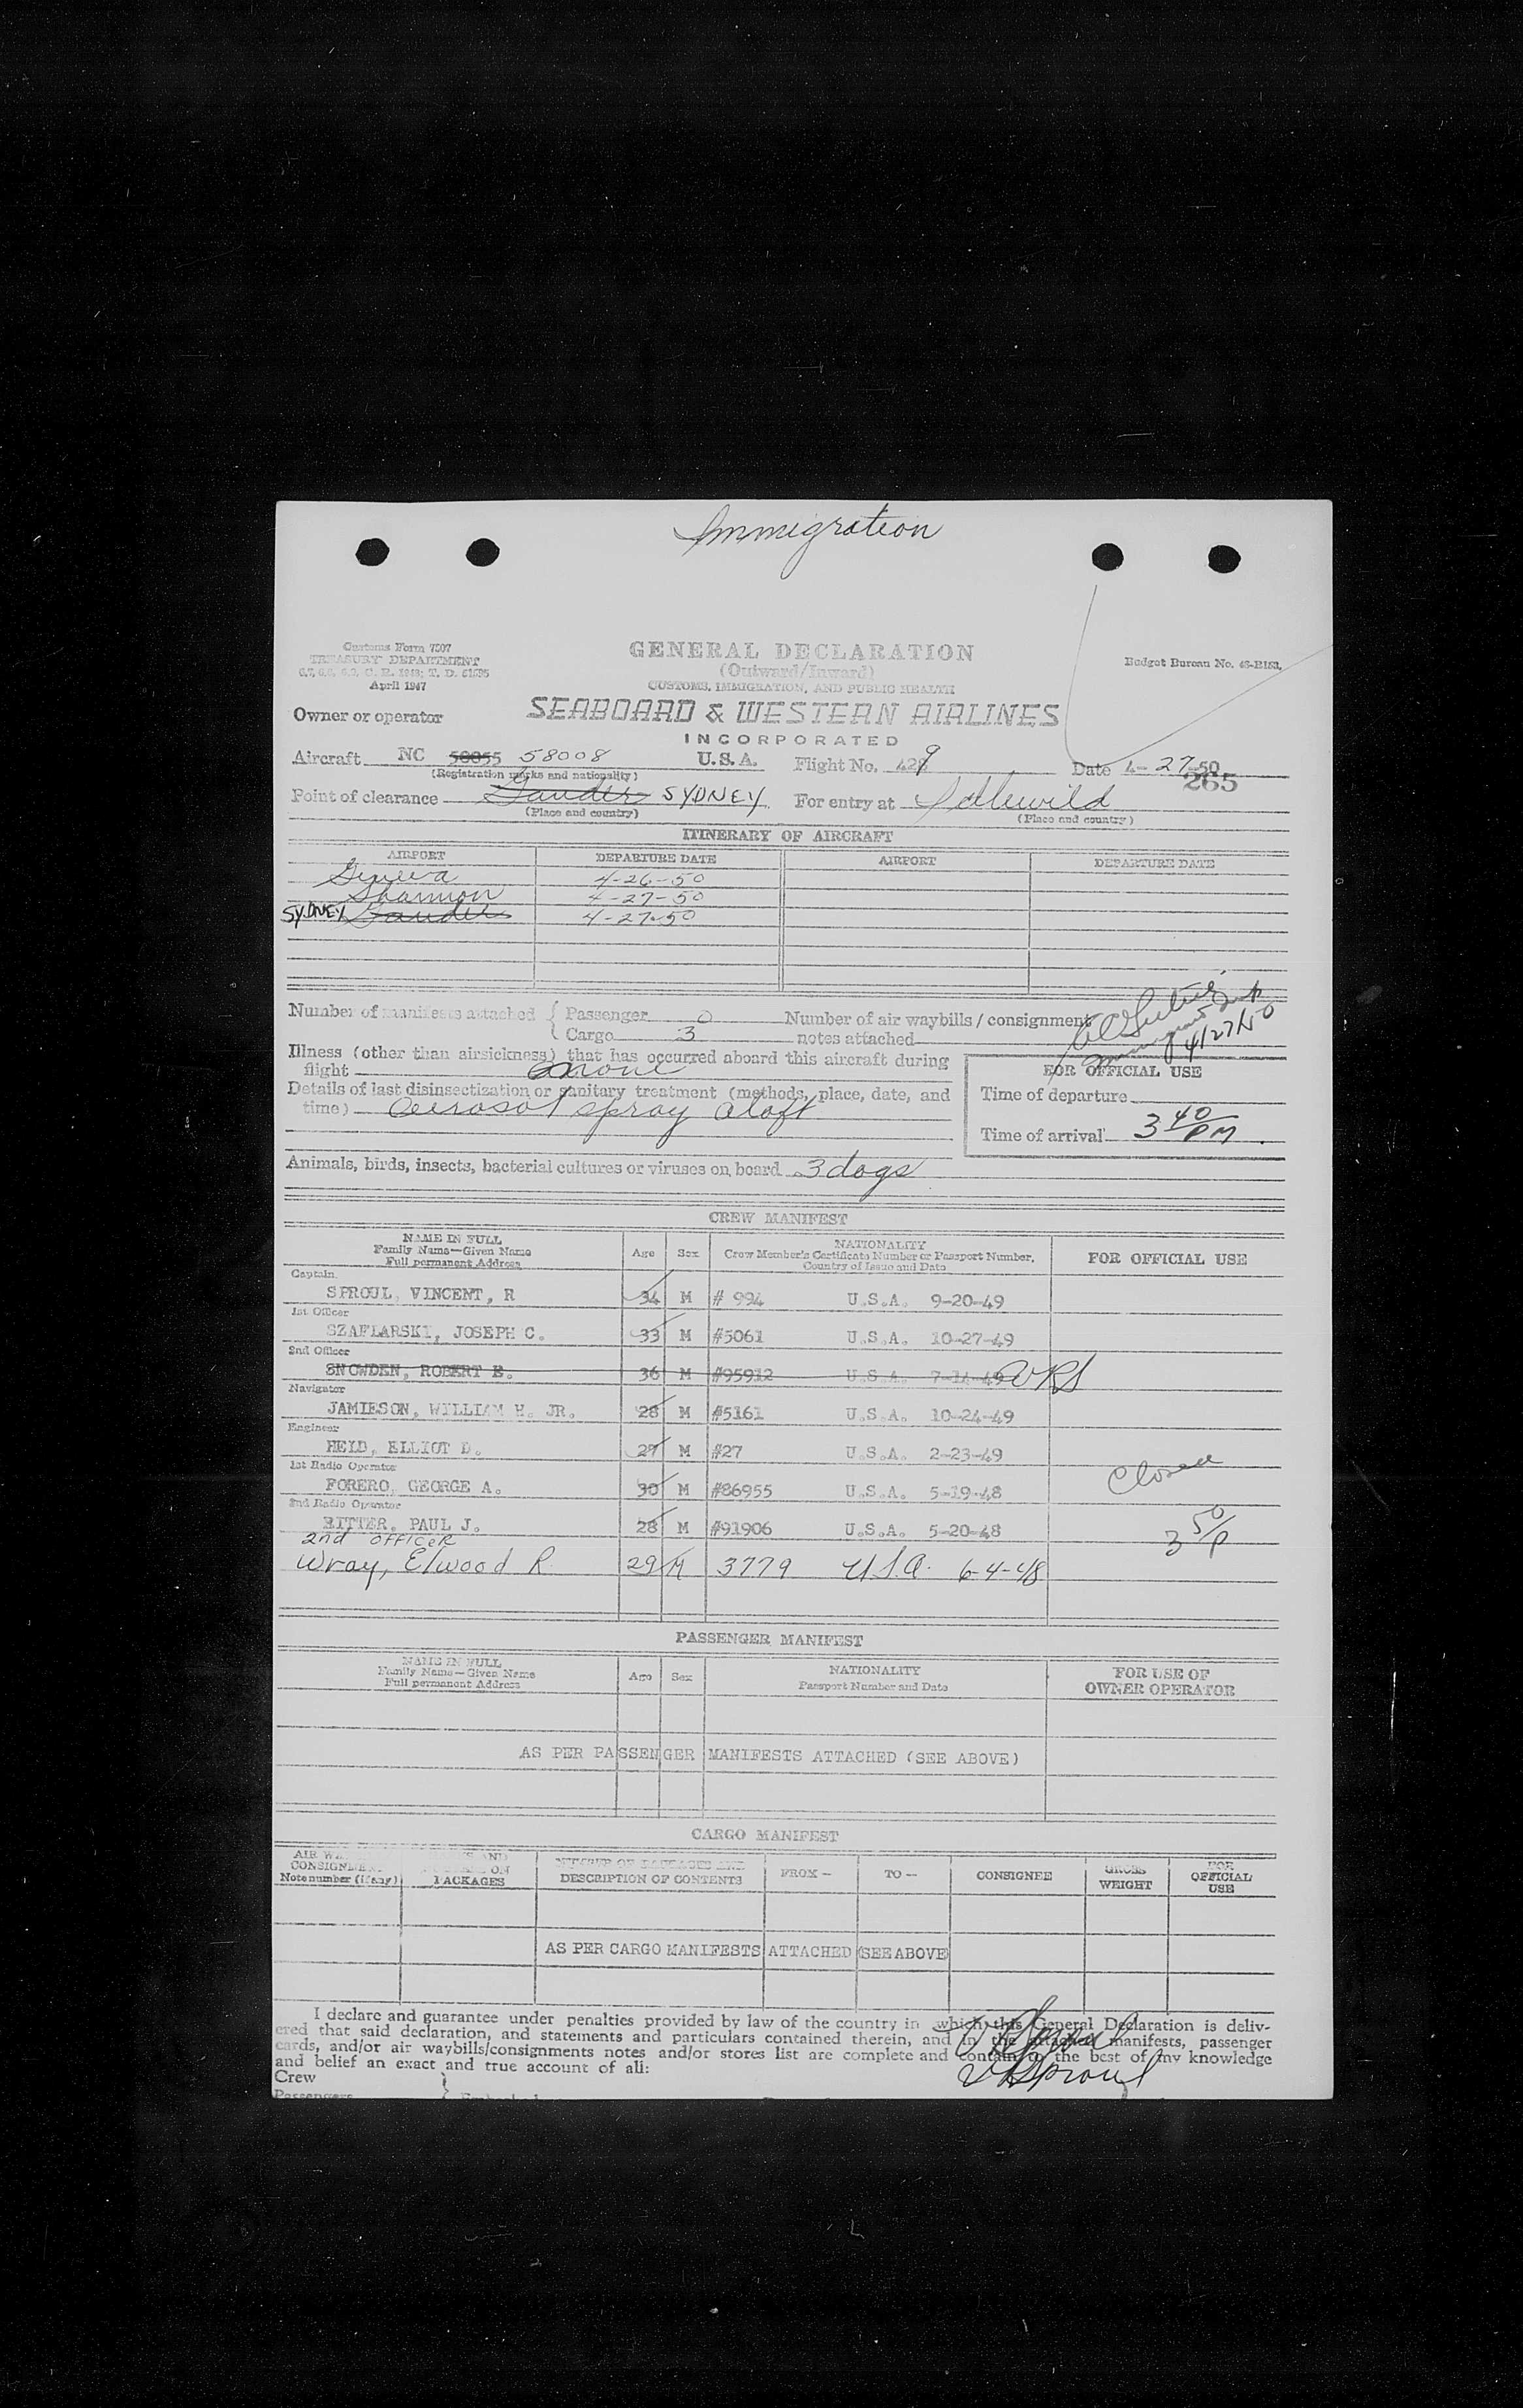 Immigration
Customs Form 7507
TREASURY DEPARTMENT
April 1947
GENERAL DECLARATION
(Outward/Inward)
CUSTOMS, IMMIGRATION, AND PUBLIC HEALTH
Budget Bureau No.
Owner or operator
SEABOARD & WESTERN AIRLINES
INCORPORATED
Aircraft NC 58008 U.S.A. Flight No. 429 Date 4-27-50
(Registration marks and nationality)
265
Point of clearance Gander SYDNEY For entry at Idlewild
(Place and country) (Place and country)
ITINERARY OF AIRCRAFT
AIRPORT DEPARTURE DATE AIRPORT DEPARTURE DATE
Geneva 4-26-50
Shannon 4-27-50
SYDNEY Gander 4-27-50
Number of manifests attached { Passenger 0 Number of air waybills / consignment
Cargo 3 notes attached
4/27/50
Illness (other than airsickness) that has occurred aboard this aircraft during
flight none
FOR OFFICIAL USE
Details of last disinsectization or sanitary treatment (methods, place, date, and
time) Aerosol spray aloft
Time of departure
Time of arrival 3 40 PM
Animals, birds, insects, bacterial cultures or viruses on board 3 dogs
CREW MANIFEST
NAME IN FULL
Family Name—Given Name
Full permanent Address
Age Sex
NATIONALITY
Crew Member's Certificate Number or Passport Number,
Country of Issue and Date
FOR OFFICIAL USE
Captain
SPROUL, VINCENT, R 34 M # 994 U.S.A. 9-20-49
1st Officer
SZAFLARSKI, JOSEPH C. 33 M #5061 U.S.A. 10-27-49
2nd Officer
SNOWDEN, ROBERT E. 36 M #95912 U.S.A. 7-14-49 VRS
Navigator
JAMIESON, WILLIAM H. JR. 28 M #5161 U.S.A. 10-24-49
Engineer
HELD, ELLIOT D. 27 M #27 U.S.A. 2-23-49
1st Radio Operator
Closed
FORERO, GEORGE A. 30 M #86955 U.S.A. 5-19-48
2nd Radio Operator
RITTER, PAUL J. 28 M #91906 U.S.A. 5-20-48
3 50/P
2nd OFFICER
Wray, Elwood R. 29 M 3779 U.S.A. 6-4-48
PASSENGER MANIFEST
NAME IN FULL
Family Name—Given Name
Full permanent Address
Age Sex
NATIONALITY
Passport Number and Date
FOR USE OF
OWNER OPERATOR
AS PER PASSENGER MANIFESTS ATTACHED (SEE ABOVE)
CARGO MANIFEST
CONSIGNMENT
Note number (if any)
PACKAGES
NUMBER OF PACKAGES AND
DESCRIPTION OF CONTENTS
FROM —
TO —
CONSIGNEE
GROSS
WEIGHT
FOR
OFFICIAL
USE
AS PER CARGO MANIFESTS ATTACHED (SEE ABOVE)
I declare and guarantee under penalties provided by law of the country in which this General Declaration is deliv-
ered that said declaration, and statements and particulars contained therein, and in the attached manifests, passenger
cards, and/or air waybills/consignments notes and/or stores list are complete and contain to the best of my knowledge
and belief an exact and true account of all:
Crew
VRSproul
Passengers